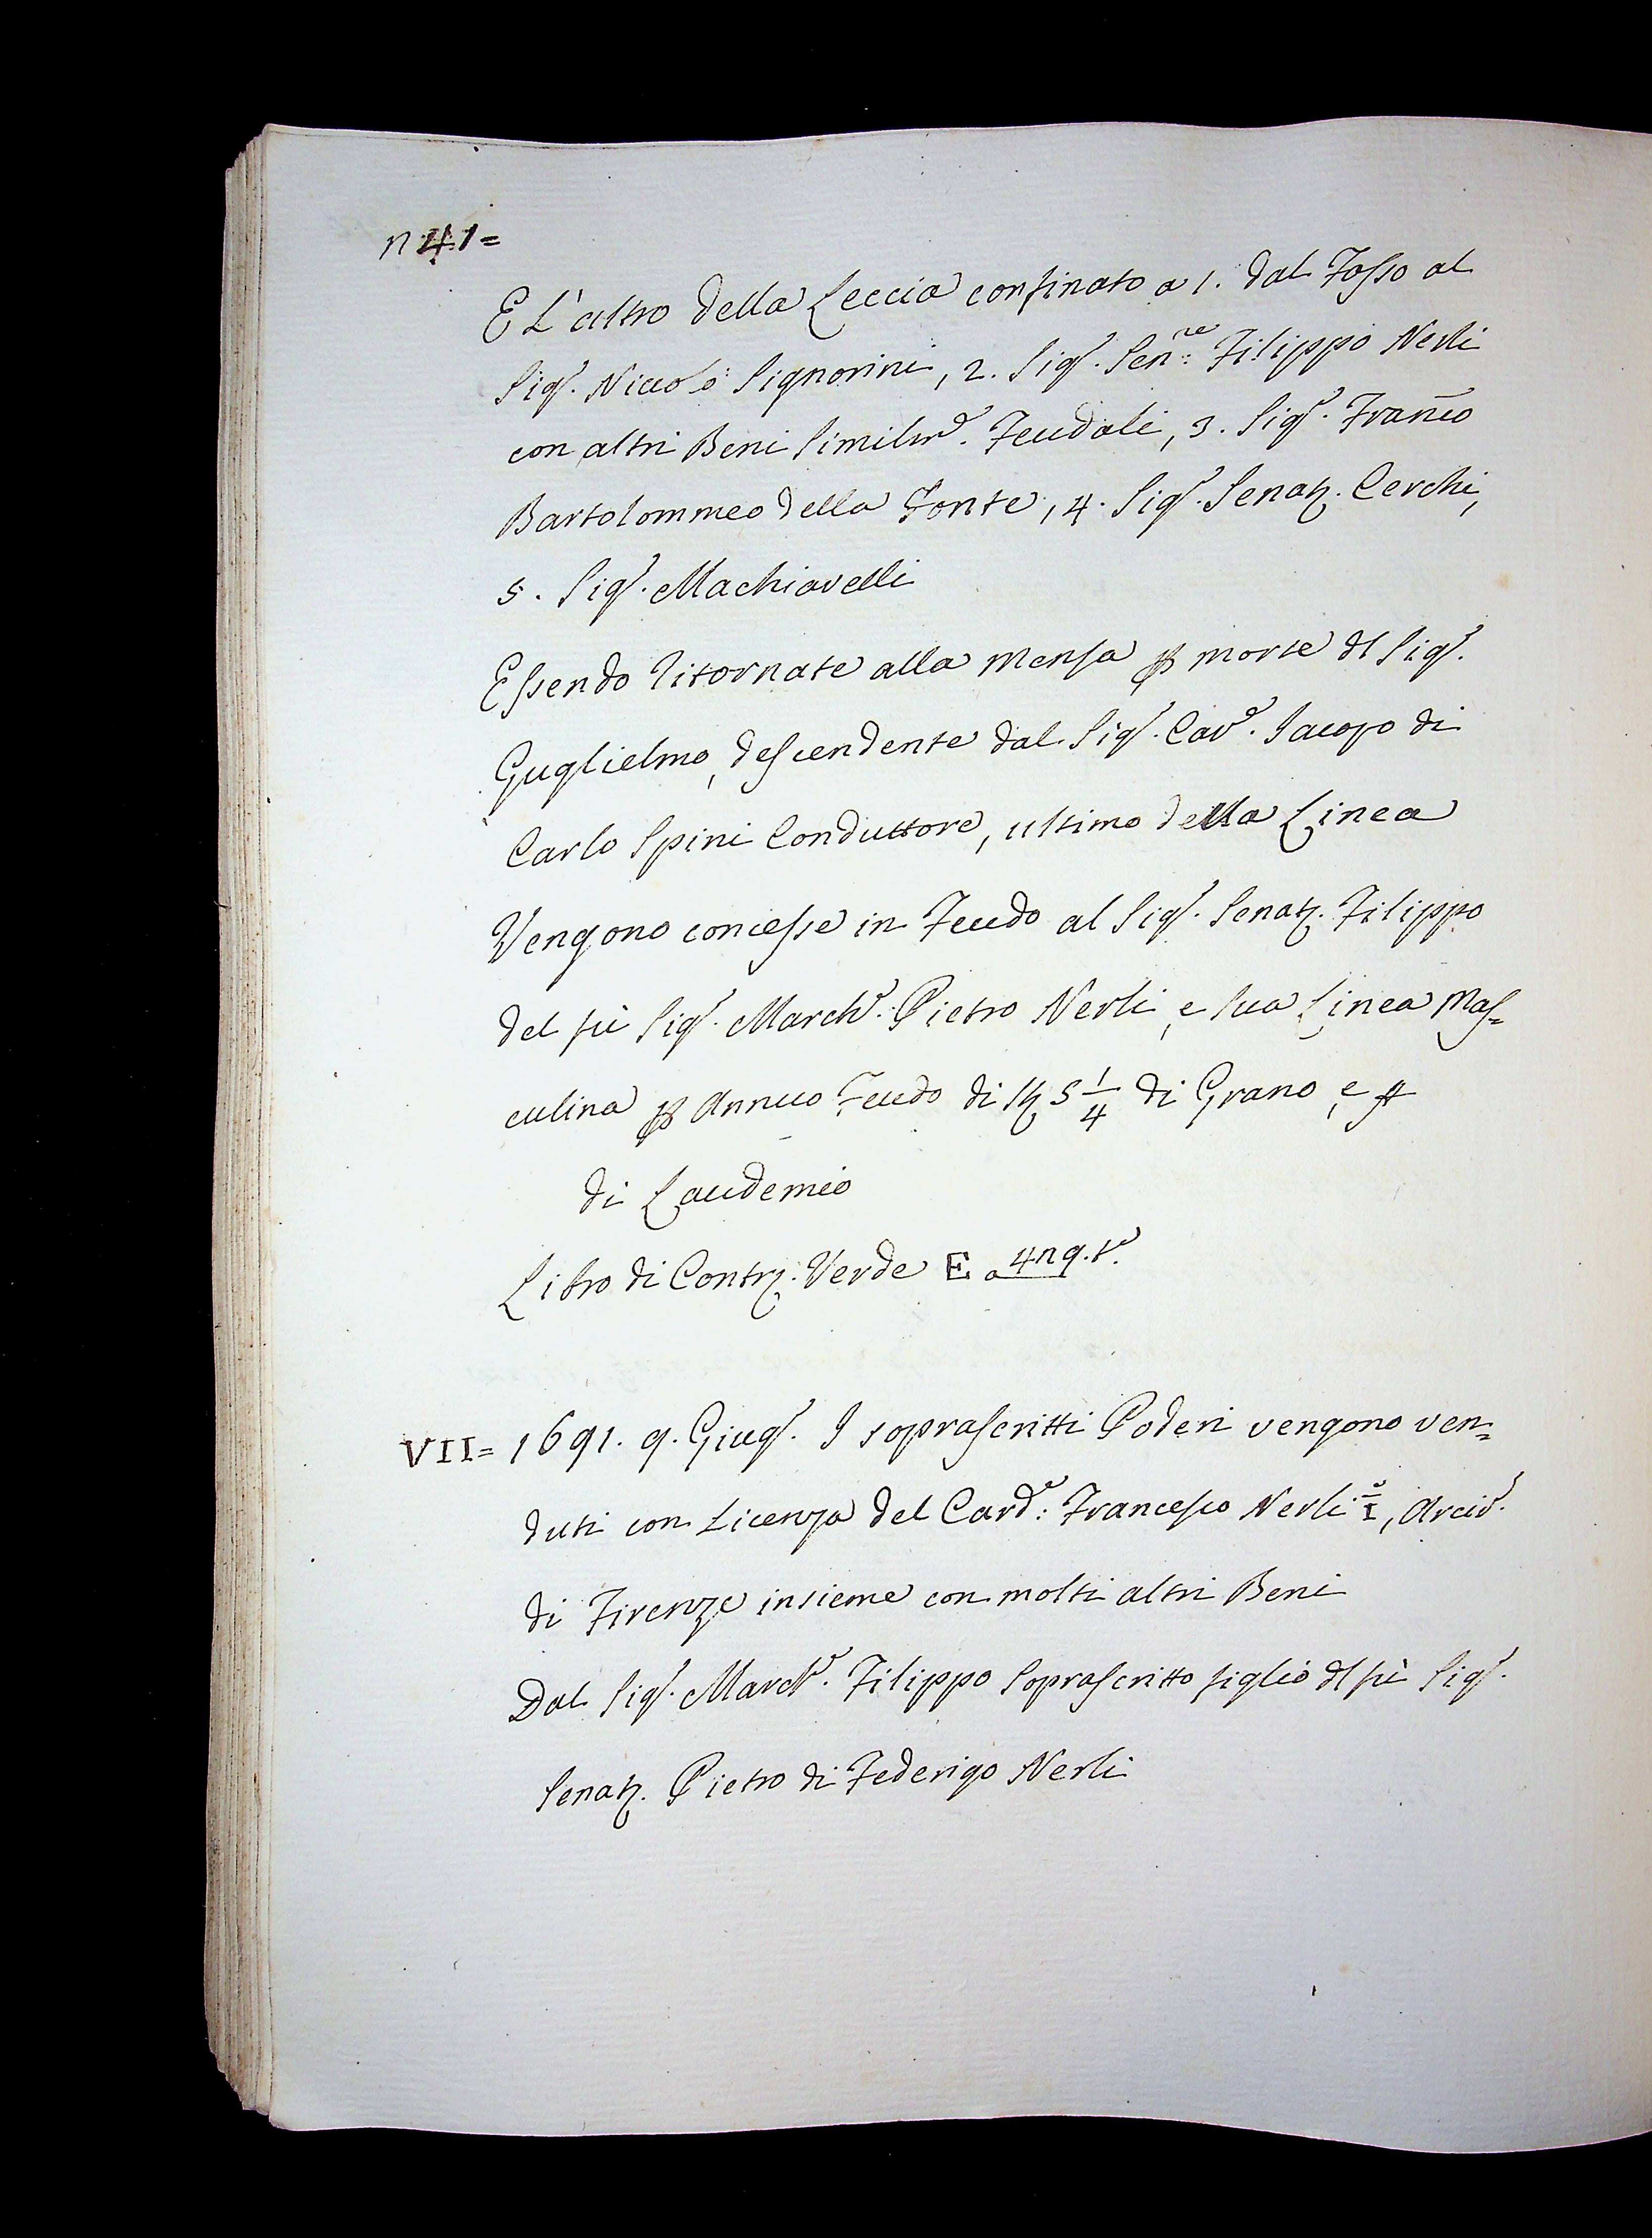 n 41=
E L'altro della Leccia confinato a 1. dal Fosso al
Sigr. Niccolò Signorini, 2. Sigr. Senre: Filippo Nerli
con altri Beni Similmte. Feudali, 3. Sigr. Franco
Bartolommeo della Fonte, 4. Sigr. Senatr. Cerchi,
5. Sigr. Machiavelli
Essendo ritornate alla Mensa ꝑ morte dl Sigr.
Guglielmo, descendente dal Sigr. Cave. Jacopo di
Carlo Spini Conduttore, ultimo della Linea
Vengono concesse in Feudo al Sigr. Senatr. Filippo
del fù Sigr. Marche. Pietro Nerli, e sua Linea Mas=
culina ꝑ Annuo Feudo di 5 1/4 di Grano, e
di Laudemio
Libro di Contri. Verde E a
VII= 1691. 9. Giugo. I soprascritti Poderi vengono ven=
duti con Licenza del Carde: Francesco Nerli I, Arcivo.
di Firenze insieme con molti altri Beni
Dal Sigr. Marche. Filippo Soprascritto figlio dl fù Sigr.
Senatr. Pietro di Federigo Nerli